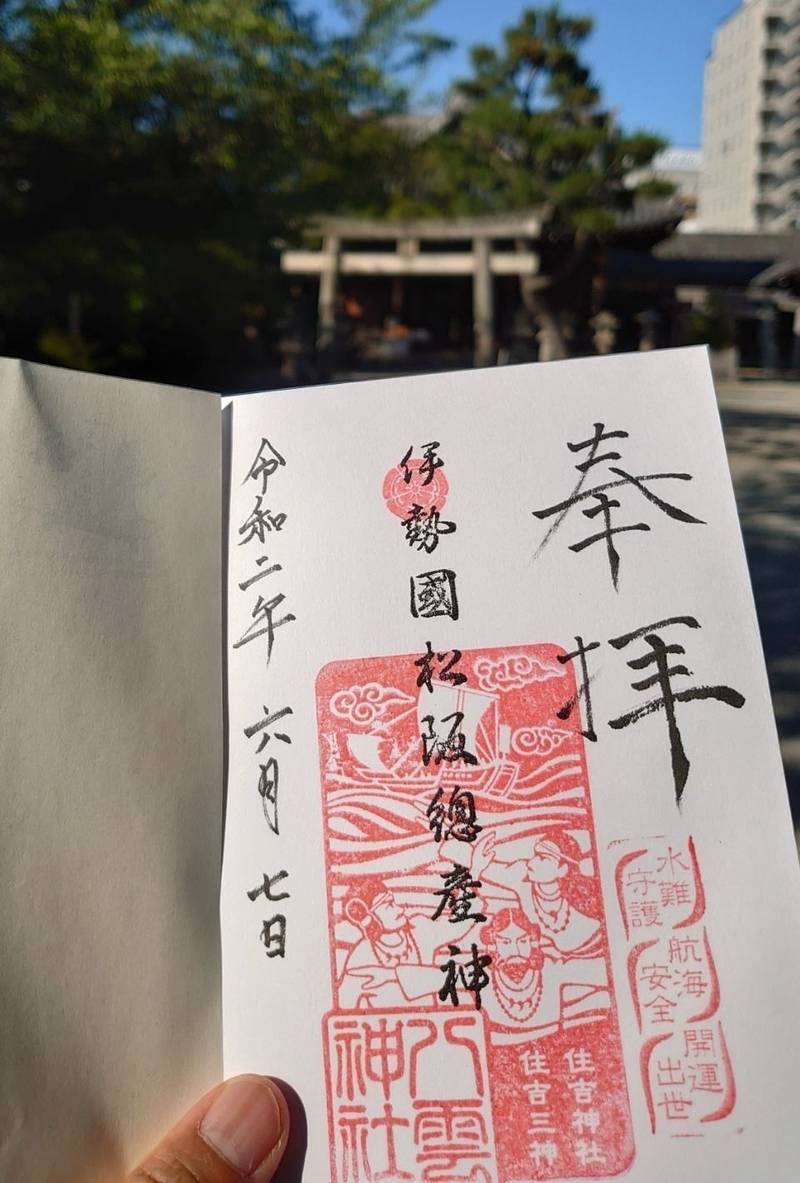 奉拝
水難守護
航海安全
開運出世
伊勢國松阪總産神
住吉神社
住吉三神
八雲神社
令和二年 六月 七日